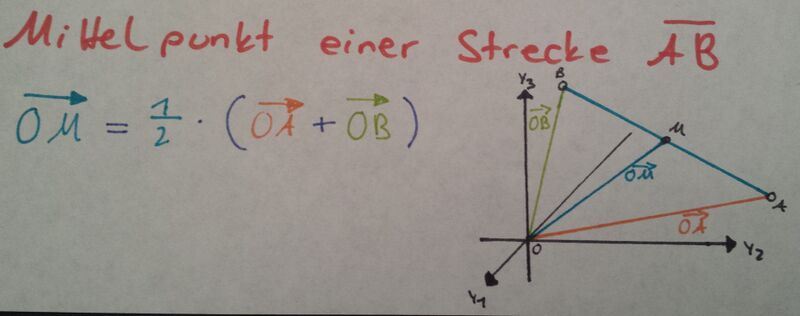 Mittelpunkt einer Strecke A͞B͞
O⃗M⃗ = 1/2 · (O⃗A⃗ + O⃗B⃗)
B
y₃
O⃗B⃗
M
O⃗M⃗
A
O⃗A⃗
O
y₂
y₁